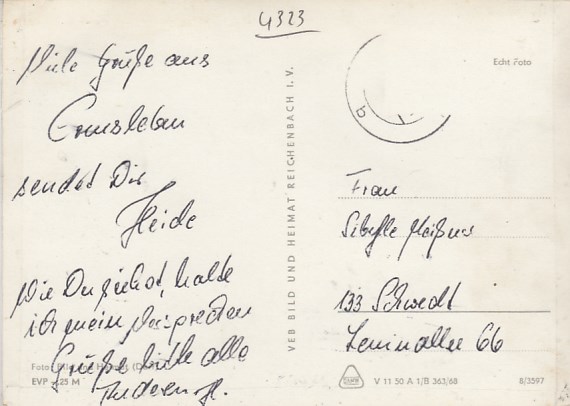 4323
Viele Grüße aus
Ermsleben
sendet Dir
Heide
Wie Du siehst, halte
ich mein Versprechen
Grüße bitte alle
H.
Foto:
EVP -,25 M
VEB BILD UND HEIMAT REICHENBACH I. V.
Echt Foto
Frau
Sibylle Meißner
133 Schwedt
Leninallee 66
V 11 50 A 1/B 363/68
8/3597